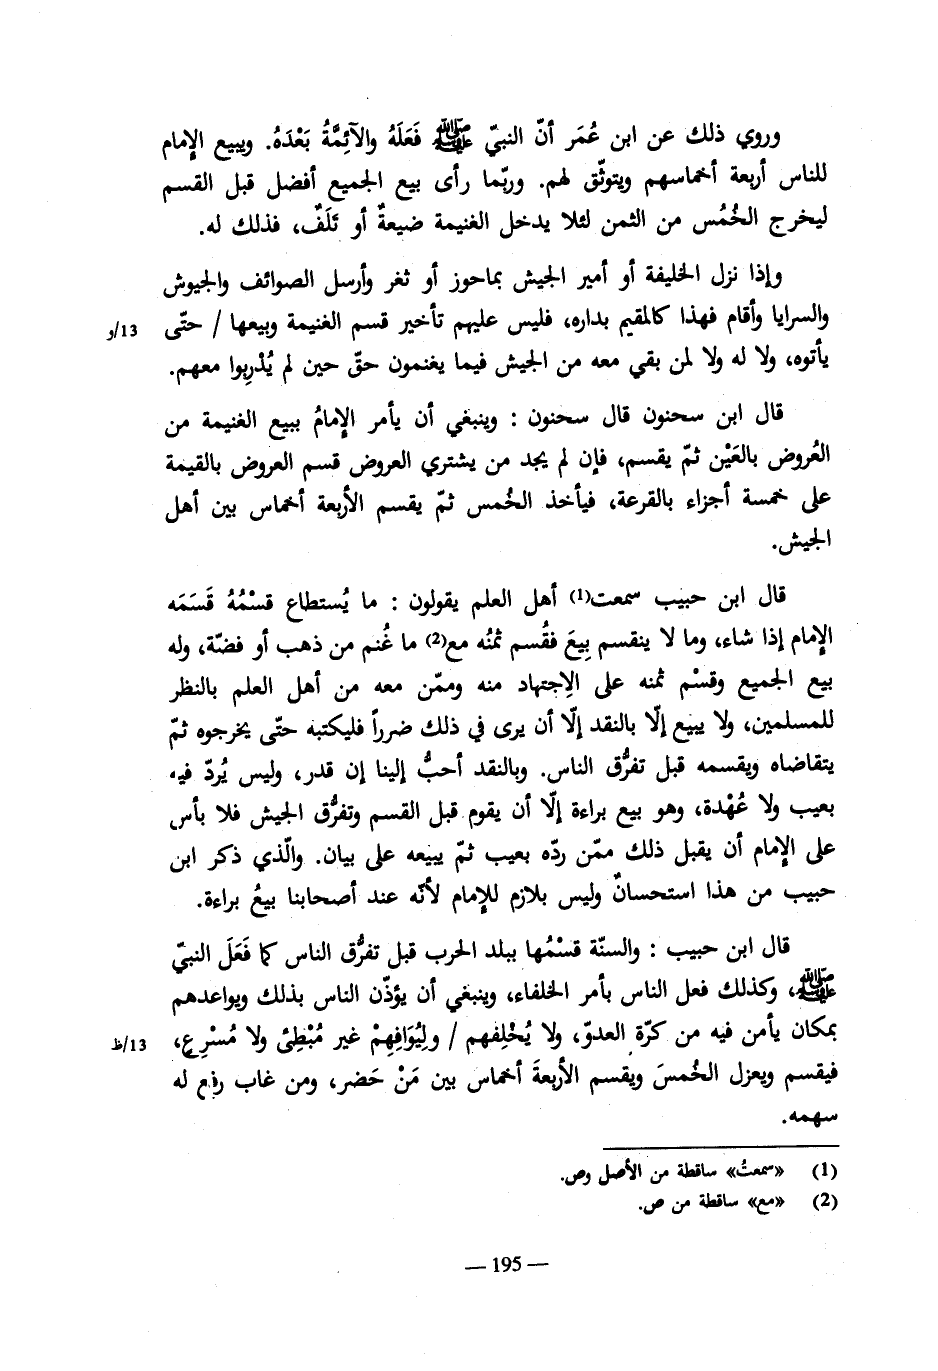 وروي ذلك عن ابن عُمَر أنّ النبيّ ﷺ فَعَلَهُ والآئِمَّةُ بَعْدَهُ. ويبيع الإمام
للناس أربعة أخماسهم ويتوثّق لهم. وربّما رأى بيع الجميع أفضل قبل القسم
ليخرج الخُمُس من الثمن لئلا يدخل الغنيمة ضيعةٌ أو تَلَفٌ، فذلك له.
وإذا نزل الخليفة أو أمير الجيش بماحوز أو ثغر وأرسل الصوائف والجيوش
والسرايا وأقام فهذا كالمقيم بداره، فليس عليهم تأخير قسم الغنيمة وبيعها / حتّى 13/و
يأتوه، ولا له ولا لمن بقي معه من الجيش فيما يغنمون حقّ حين لم يُدْرِبوا معهم.
قال ابن سحنون قال سحنون : وينبغي أن يأمر الإمامُ ببيع الغنيمة من
العُروض بالعَيْن ثمّ يقسم، فإن لم يجد من يشتري العروض قسم العروض بالقيمة
على خمسة أجزاء بالقرعة، فيأخذ الخُمس ثمّ يقسم الأربعة أخماس بين أهل
الجيش.
قال ابن حبيب سمعت(1) أهل العلم يقولون : ما يُستطاع قسْمُهُ قَسَمَه
الإمام إذا شاء، وما لا ينقسم بِيعَ فقُسم ثمنُه مع(2) ما غُنم من ذهب أو فضّة، وله
بيع الجميع وقسْم ثمنه على الاِجتهاد منه وممّن معه من أهل العلم بالنظر
للمسلمين، ولا يبيع إلّا بالنقد إلّا أن يرى في ذلك ضرراً فليكتبه حتّى يخرجوه ثمّ
يتقاضاه ويقسمه قبل تفرُّق الناس. وبالنقد أحبُّ إلينا إن قدر، وليس يُردّ فيه
بعيب ولا عُهْدة، وهو بيع براءة إلّا أن يقوم قبل القسم وتفرُّق الجيش فلا بأس
على الإمام أن يقبل ذلك ممّن ردّه بعيب ثمّ يبيعه على بيان. والّذي ذكر ابن
حبيب من هذا استحسانٌ وليس بلازم للإمام لأنّه عند أصحابنا بيعُ براءة.
قال ابن حبيب : والسنّة قسْمُها ببلد الحرب قبل تفرُّق الناس كما فَعَلَ النبيّ
ﷺ، وكذلك فعل الناس بأمر الخلفاء، وينبغي أن يؤذّن الناس بذلك ويواعدهم
بمكان يأمن فيه من كرّة العدوّ، ولا يُخْلِفهم / ولِيُوَافِهِمْ غير مُبْطِئ ولا مُسْرِعٍ، 13/ظ
فيقسم ويعزل الخُمسَ ويقسم الأربعةَ أخماس بين مَنْ حَضر، ومن غاب رفع له
سهمه.
(1) «سمعتُ» ساقطة من الأصل وص.
(2) «مع» ساقطة من ص.
— 195 —